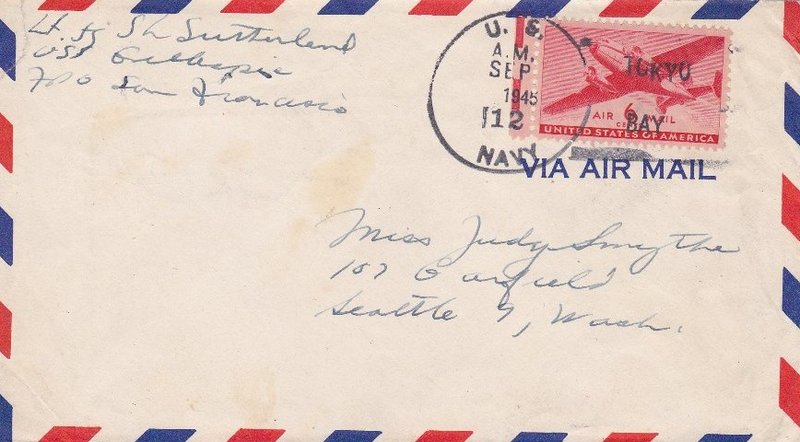 Lt. jg S L Sutherland
USS Gillespie
FPO San Francisco
U. S.
A.M.
SEP
12
1945
NAVY
TOKYO
BAY
AIR 6 MAIL
CENTS
UNITED STATES OF AMERICA
VIA AIR MAIL
Miss Judy Smythe
107 Garfield
Seattle 9, Wash.